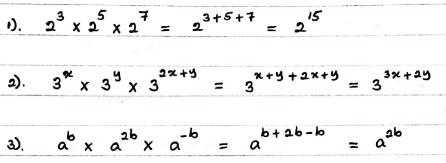 1). 2³ x 2⁵ x 2⁷ = 2³⁺⁵⁺⁷ = 2¹⁵
2). 3ˣ x 3ʸ x 3²ˣ⁺ʸ = 3ˣ⁺ʸ⁺²ˣ⁺ʸ = 3³ˣ⁺²ʸ
3). aᵇ x a²ᵇ x a⁻ᵇ = aᵇ⁺²ᵇ⁻ᵇ = a²ᵇ